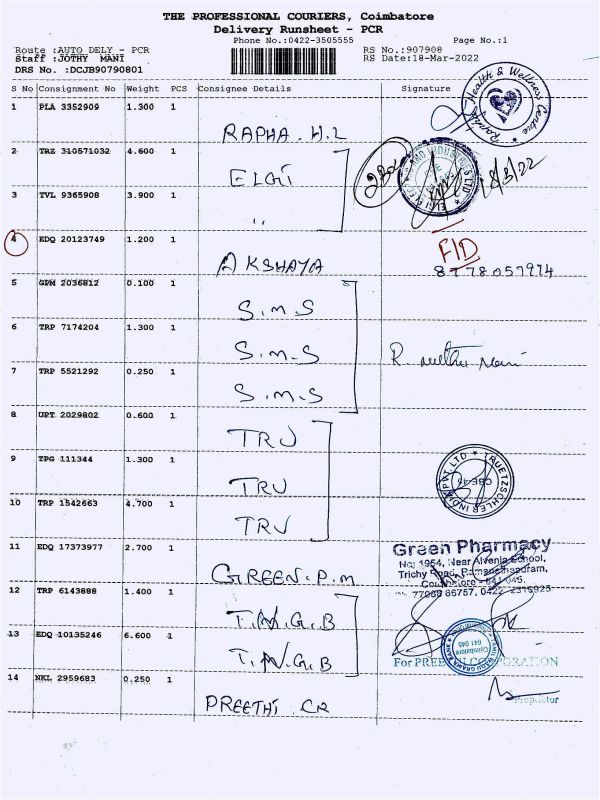 THE PROFESSIONAL COURIERS, Coimbatore
Delivery Runsheet - PCR
Phone No.:0422-3505555 Page No.:1
Route :AUTO DELY - PCR RS No.:907908
Staff :JOTHY MANI RS Date:18-Mar-2022
DRS No. :DCJB90790801
S No Consignment No Weight PCS Consignee Details Signature
1 PLA 3352909 1.300 1
RAPHA. H.L
Rapha Health & Wellness Centre
2 TRZ 310571032 4.600 1
ELGI
18/3/22
3 TVL 9365908 3.900 1
"
4 EDQ 20123749 1.200 1
AKSHAYA
FID
8778057974
5 GPM 2036812 0.100 1
S.M.S
6 TRP 7174204 1.300 1
S.M.S
7 TRP 5521292 0.250 1
S.M.S
8 UPT 2029802 0.600 1
TRU
9 TPG 111344 1.300 1
TRU
TRUETZSCHLER INDIA PVT LTD
CBE-45
10 TRP 1542663 4.700 1
TRU
11 EDQ 17373977 2.700 1
GREEN. P.M
Green Pharmacy
No: 1954, Near Alvernia School,
Trichy Road, Ramanathapuram,
Coimbatore - 641 045.
77088 65757, 0422-2316925
12 TRP 6143888 1.400 1
T.N.G.B
13 EDQ 10135246 6.600 1
T.N.G.B
TAMIL NADU GRAMA BANK
Coimbatore
641 045
14 NKL 2959683 0.250 1
PREETHI. CR
For PREETHI CORPORATION
Proprietor